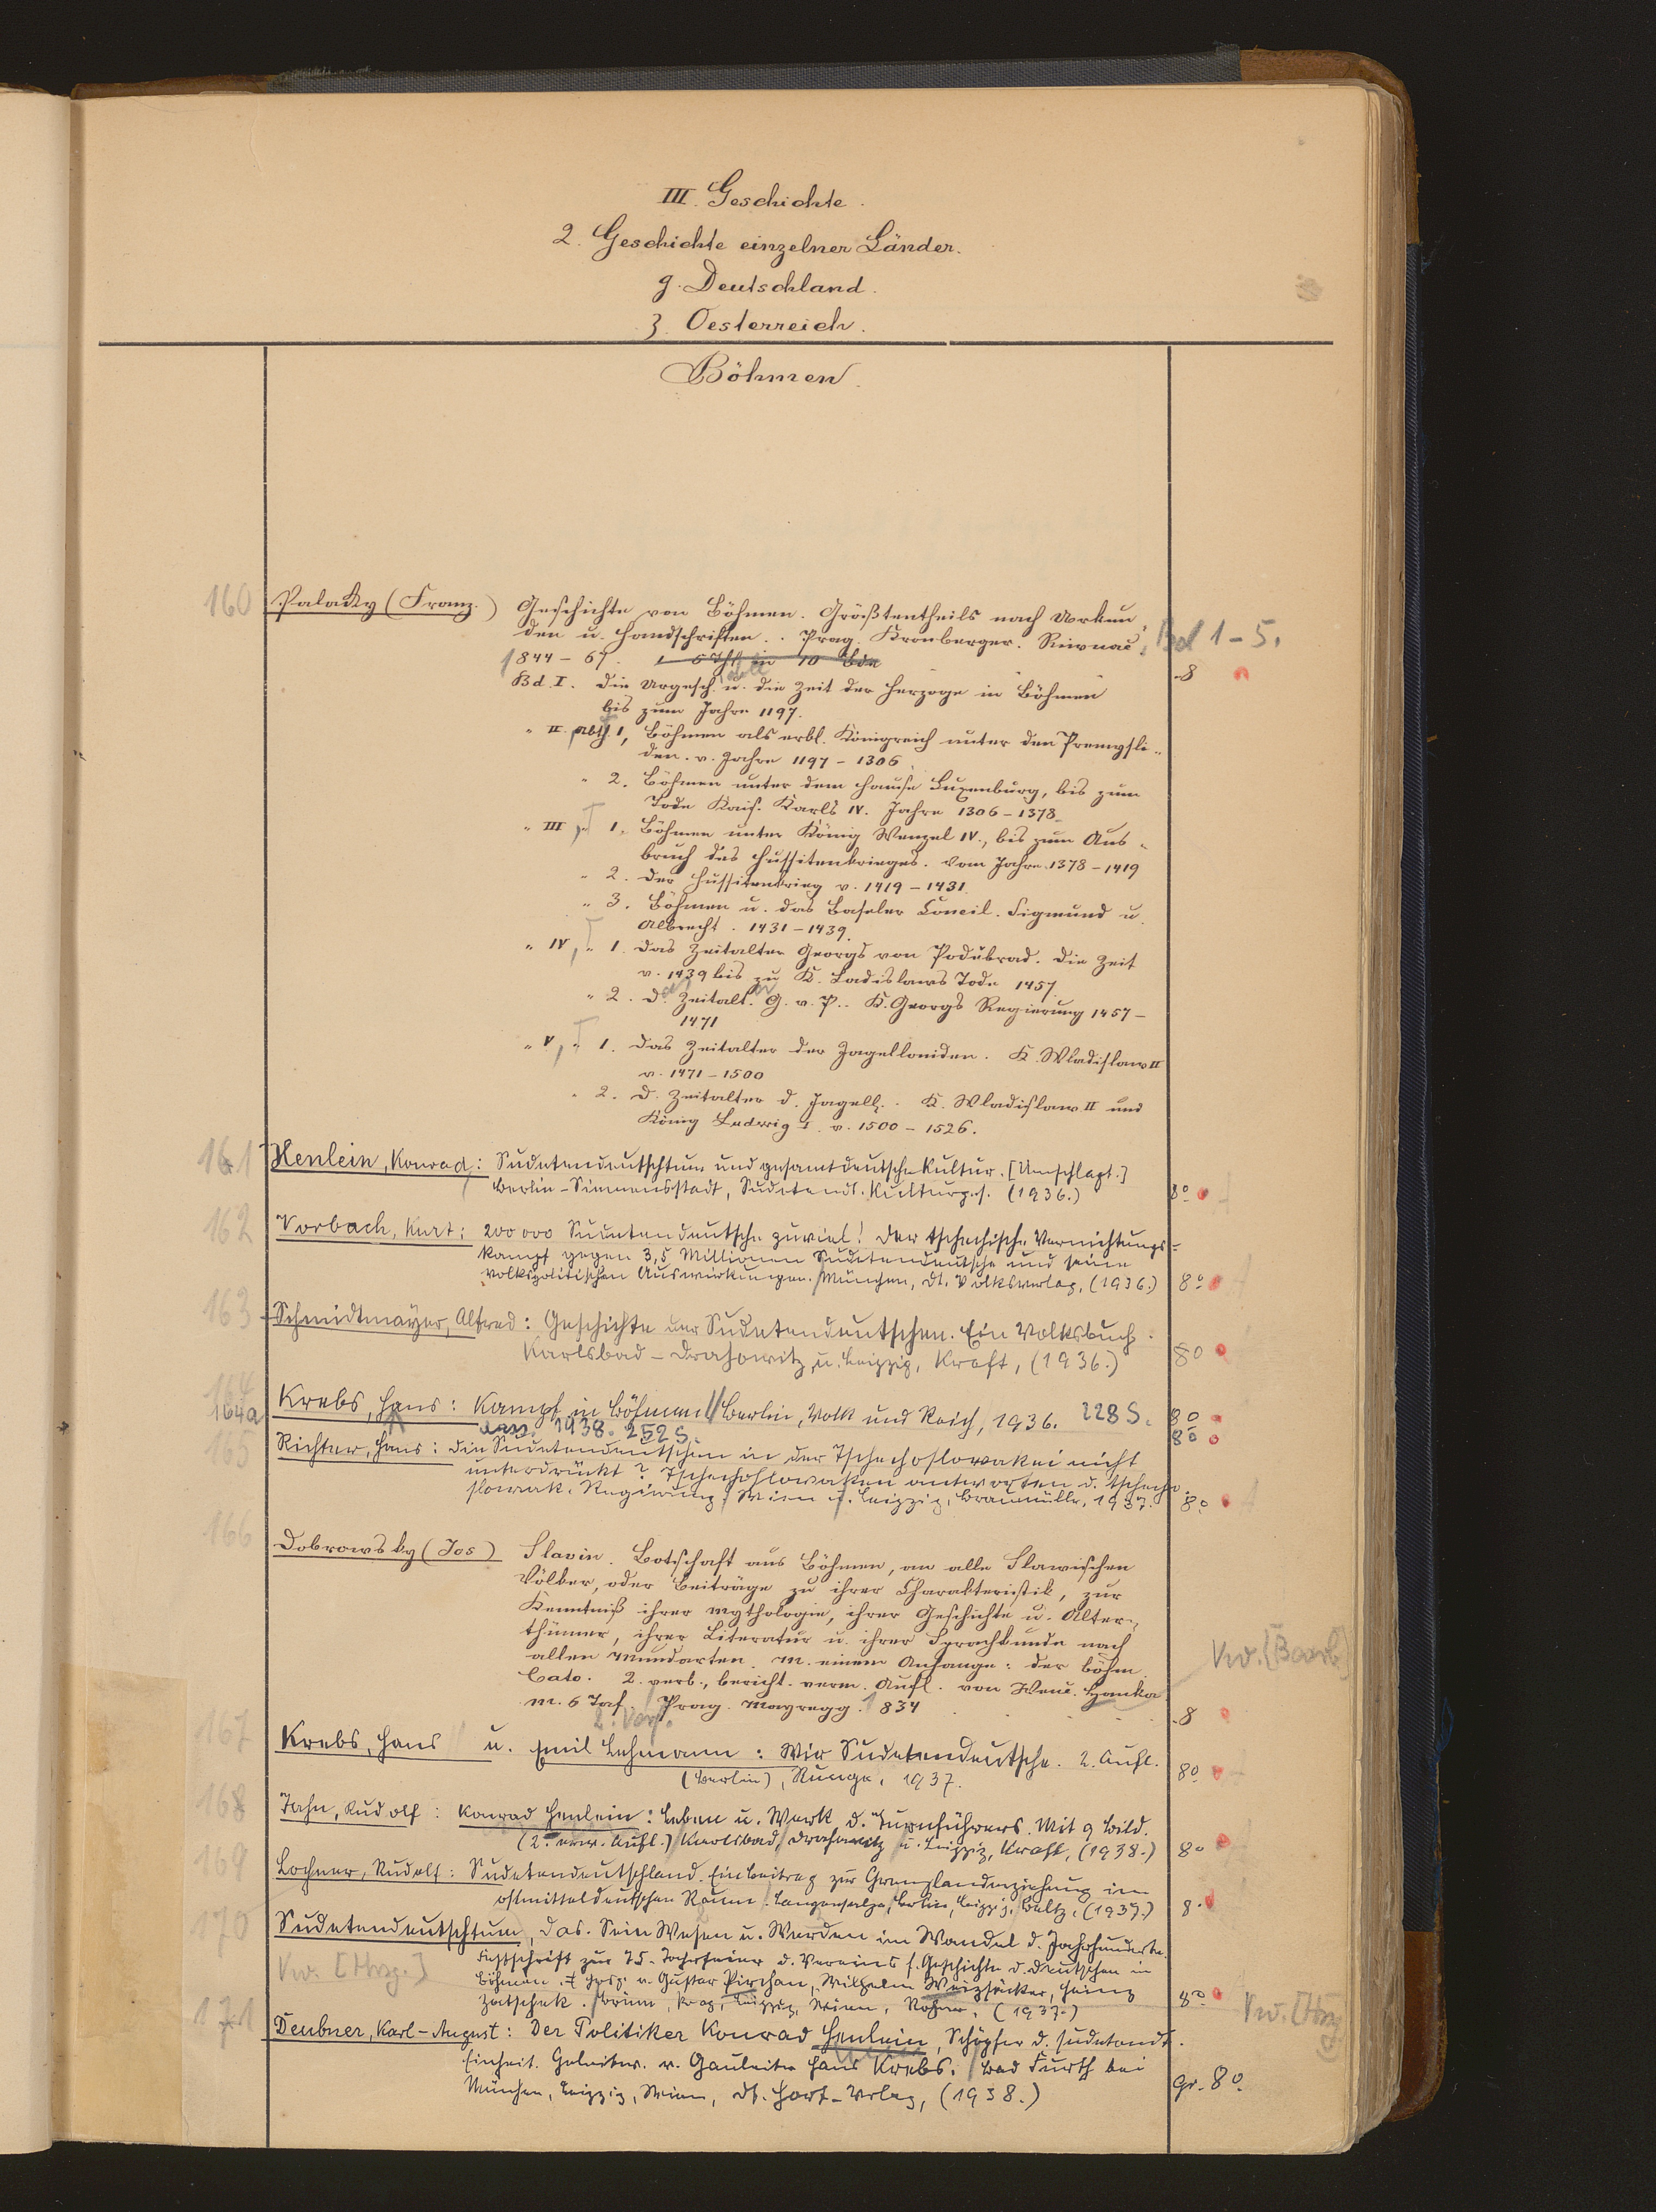 III. Geschichte.
2. Geschichte einzelner Länder.
g. Deutschland.
3. Oesterreich.
Böhmen.
160 Palacky (Franz.) Geschichte von Böhmen. Größtentheils nach Urkun-
den u. Handschriften. Prag. Kronberger. Riwnac. Bd 1-5.
1844-67. 8
Bd. I. Die Urgesch. u. die Zeit der Herzoge in Böhmen
bis zum Jahre 1197.
" II. Abth. 1, Böhmen als erbl. Königreich unter den Premysli-
den. v. Jahre 1197-1306
" 2. Böhmen unter dem Hause Luxenburg, bis zum
Tode Kais. Karls IV. Jahre 1306-1378.
" III, " 1. Böhmen unter König Wenzel IV., bis zum Aus-
bruch des Hussitenkrieges. vom Jahre 1378-1419
" 2. Der Hussitenkrieg v. 1419-1431.
" 3. Böhmen u. das Baseler Concil. Sigmund u.
Albrecht. 1431-1439.
" IV, " 1. Das Zeitalter Georgs von Podiebrad. Die Zeit
v. 1439 bis zu K. Ladislaws Tode 1457.
" 2. D. Zeitalt. G. v. P.. K. Georgs Regierung 1457-
1471
" V, " 1. Das Zeitalter der Jagelloniden. K. Wladislaw II
v. 1471-1500
" 2. D. Zeitalter d. Jagell. K. Wladislaw II und
König Ludwig I. v. 1500-1526.
161 Henlein, Konrad: Sudetendeutschtum und gesamtdeutsche Kultur. [Umschlagt.]
Berlin-Siemensstadt, Sudetendt. Kulturges. (1936.) 8°
162 Vorbach, Kurt: 200000 Sudetendeutsche zuviel! Der tschechische Vernichtungs-
kampf gegen 3,5 Millionen Sudetendeutsche und seine
volkspolitischen Auswirkungen. München, Dt. Volksverlag, (1936.) 8°
163 Schmidtmayer, Alfred: Geschichte der Sudetendeutschen. Ein Volksbuch.
Karlsbad-Drahowitz u. Leipzig, Kraft, (1936.) 8°
164 Krebs, Hans: Kampf in Böhmen. Berlin, Volk und Reich, 1936. 228 S. 8°
164a 1938. 252 S. 8°
165 Richter, Hans: Die Sudetendeutschen in der Tschechoslowakei nicht
unterdrückt? Tschechoslowaken antworten d. tschecho-
slowak. Regierung. Wien u. Leipzig, Braumüller, 1937. 8°
166 Dobrowsky (Jos) Slavin. Botschaft aus Böhmen, an alle Slawischen
Völker, oder Beiträge zu ihrer Charakteristik, zur
Kenntniß ihrer Mythologie, ihrer Geschichte u. Alter-
thümer, ihrer Literatur u. ihrer Sprachkunde nach
allen Mundarten. M. einem Anhange: der böhm.
Cato. 2. verb., bericht. verm. Aufl. von Wenc. Hanka.
m. 6 Taf. Prag. Mayregg. 1834 8
2. Verf.
167 Krebs, Hans u. Emil Lehmann: Wir Sudetendeutsche. 2. Aufl.
(Berlin), Runge, 1937. 8°
168 Jahn, Rudolf: Konrad Henlein: Leben u. Werk d. Turnführers. Mit 9 Bild.
(2. erw. Aufl.) Karlsbad, Drahowitz u. Leipzig, Kraft, (1938.) 8°
169 Lochner, Rudolf: Sudetendeutschland. Ein Beitrag zur Grenzlanderziehung im
ostmitteldeutschen Raum. Langensalza, Berlin, Leipzig, Beltz, (1937.) 8°
170 Sudetendeutschtum, das. Sein Wesen u. Werden im Wandel d. Jahrhunderte.
Festschrift zur 75-Jahrfeier d. Vereins f. Geschichte d. Deutschen in
Vw. [Hrsg.] Böhmen. Hrsg. v. Gustav Pirchan, Wilhelm Weizsäcker, Heinz
Zatschek. Brünn, Prag, Leipzig, Wien, Rohrer, (1937.) 8° Vw. [Hrsg.]
171 Deubner, Karl-August: Der Politiker Konrad Henlein, Schöpfer d. sudetendt.
Einheit. Geleitw. v. Gauleiter Hans Krebs. Bad Furth bei
München, Leipzig, Wien, Dt. Hort-Verlag, (1938.) Gr. 8°